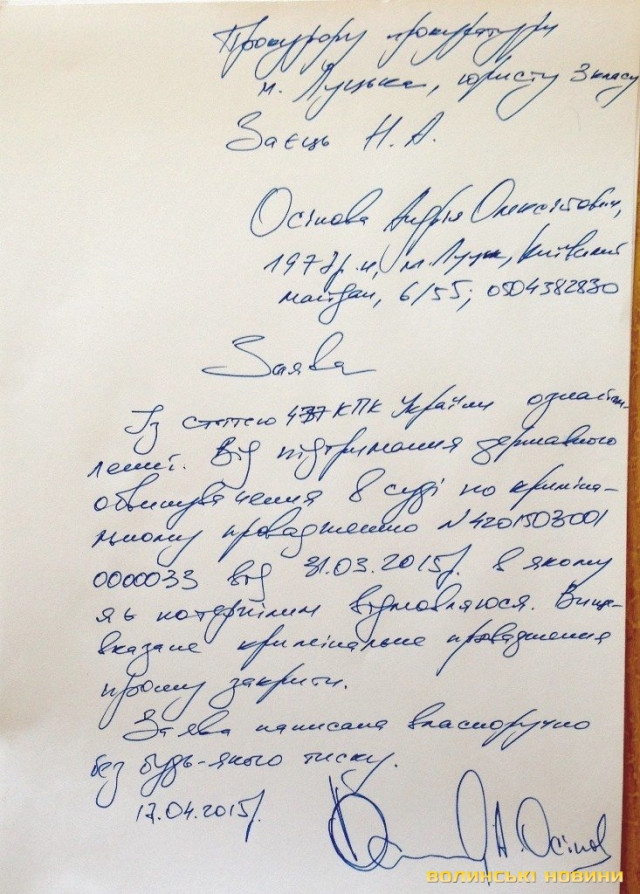 Прокурору прокуратури
м. Луцька, юристу 3 класу
Заєць Н. А.
Осіпова Андрія Олексійовича,
197 р.н., м. Луцьк, Київський
майдан, 6/55; 0504382830
Заява
Із статтею КПК України ознайом-
лений. Від підтримання державного
обвинувачення в суді по криміна-
льному провадженню N4201503001
0000033 від 31.03.2015р. в якому
я є потерпілим відмовляюся. Вище-
вказане кримінальне провадження
прошу закрити.
Заява написана власноручно
без будь-якого тиску.
17.04.2015р.
А. Осіпов
ВОЛИНСЬКІ НОВИНИ